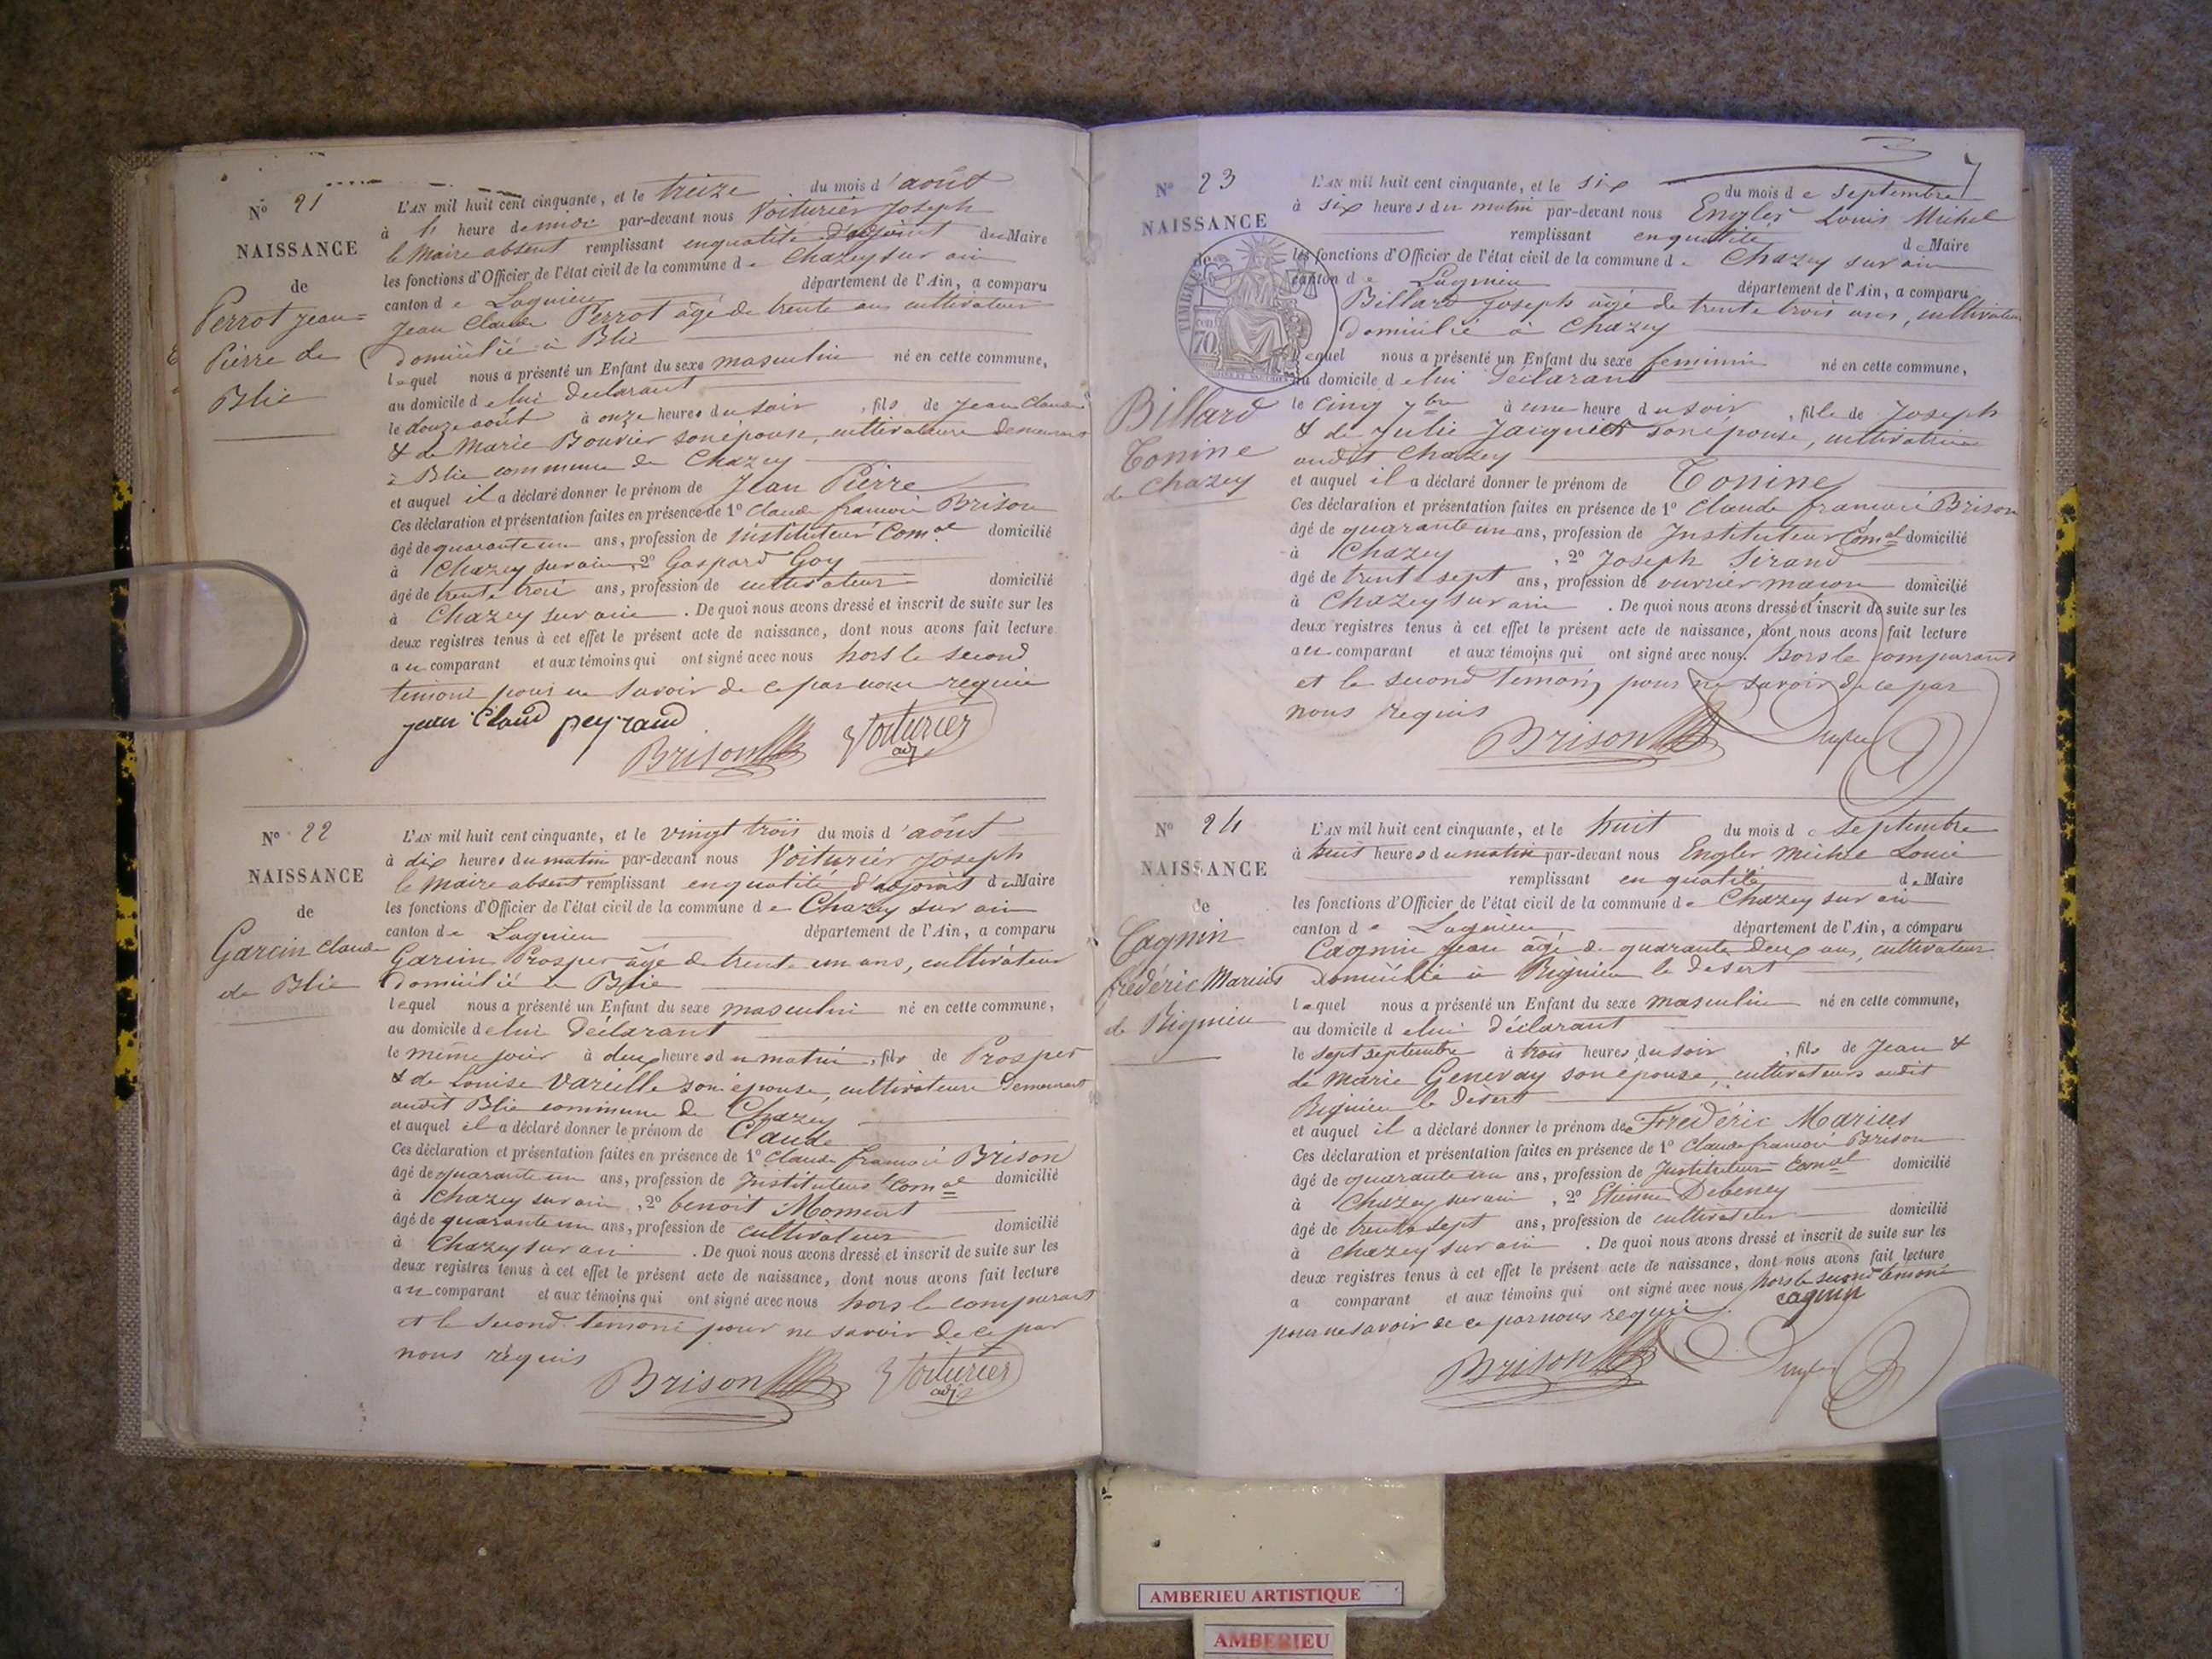 N° 21
NAISSANCE
de
Perrot jean=
Pierre de
Blie
L'AN mil huit cent cinquante, et le treize du mois d'août
à heure de midi par-devant nous Voiturier Joseph
le Maire absent remplissant en qualité d'adjoint du Maire
les fonctions d'Officier de l'état civil de la commune de Chazey sur ain
canton de Lagnieu département de l'Ain, a comparu
Jean Claude Perrot âgé de trente ans cultivateur
domicilié à Blie
lequel nous a présenté un Enfant du sexe masculin né en cette commune,
au domicile de lui declarant
le douze août à onze heures du soir, fils de Jean Claude
& de Marie Bouvier son épouse, cultivateurs demeurant
à Blie commune de Chazey
et auquel il a déclaré donner le prénom de Jean Pierre
Ces déclaration et présentation faites en présence de 1° Claude francois Brison
âgé de quarante un ans, profession de instituteur Com.al domicilié
à Chazey sur ain, 2° Gaspard Goy
âgé de trente trois ans, profession de cultivateur domicilié
à Chazey sur ain. De quoi nous avons dressé et inscrit de suite sur les
deux registres tenus à cet effet le présent acte de naissance, dont nous avons fait lecture
au comparant et aux témoins qui ont signé avec nous hors le second
temoin pour ne savoir de ce par nous requis
jean Claud peyraud
Brison Voiturier
adj
N° 22
NAISSANCE
de
Garcin Claude
de Blie
L'AN mil huit cent cinquante, et le vingt trois du mois d'août
à dix heures du matin par-devant nous Voiturier Joseph
le Maire absent remplissant en qualité d'adjoint du Maire
les fonctions d'Officier de l'état civil de la commune de Chazey sur ain
canton de Lagnieu département de l'Ain, a comparu
Garcin Prosper âgé de trente un ans, cultivateur
domicilié à Blie
lequel nous a présenté un Enfant du sexe masculin né en cette commune,
au domicile de lui déclarant
le même jour à deux heures du matin, fils de Prosper
& de Louise Vareille son épouse, cultivateurs demeurant
audit Blie commune de Chazey
et auquel il a déclaré donner le prénom de Claude
Ces déclaration et présentation faites en présence de 1° Claude francois Brison
âgé de quarante un ans, profession de Instituteur Com.al domicilié
à Chazey sur ain, 2° benoit Moment
âgé de quarante un ans, profession de cultivateur domicilié
à Chazey sur ain. De quoi nous avons dressé et inscrit de suite sur les
deux registres tenus à cet effet le présent acte de naissance, dont nous avons fait lecture
au comparant et aux témoins qui ont signé avec nous hors le comparant
et le second temoin pour ne savoir de ce par
nous requis
Brison Voiturier
adj
7
N° 23
NAISSANCE
de
TIMBRE
70
Billard
Tonine
de Chazey
L'AN mil huit cent cinquante, et le six du mois de septembre
à six heures du matin par-devant nous Engler Louis Michel
remplissant en qualité de Maire
les fonctions d'Officier de l'état civil de la commune de Chazey sur ain
canton de Lagnieu département de l'Ain, a comparu
Billard Joseph âgé de trente trois ans, cultivateur
domicilié à Chazey
lequel nous a présenté un Enfant du sexe feminin né en cette commune,
au domicile de lui déclarant
le cinq 7bre à une heure du soir, fille de Joseph
& de Julie Jacquet son épouse, cultivatrice
audit Chazey
et auquel il a déclaré donner le prénom de Tonine
Ces déclaration et présentation faites en présence de 1° Claude francois Brison
âgé de quarante un ans, profession de Instituteur Com.al domicilié
à Chazey, 2° Joseph Sirand
âgé de trente sept ans, profession de ouvrier macon domicilié
à Chazey sur ain. De quoi nous avons dressé et inscrit de suite sur les
deux registres tenus à cet effet le présent acte de naissance, dont nous avons fait lecture
au comparant et aux témoins qui ont signé avec nous. hors le comparant
et le second temoin, pour ne savoir de ce par
nous requis
Brison
N° 24
NAISSANCE
de
Cagnin
frédéric Marius
de Rignieu
L'AN mil huit cent cinquante, et le huit du mois de septembre
à huit heures du matin par-devant nous Engler Michel Louis
remplissant en qualité de Maire
les fonctions d'Officier de l'état civil de la commune de Chazey sur ain
canton de Lagnieu département de l'Ain, a comparu
Cagnin Jean âgé de quarante deux ans, cultivateur
domicilié à Rignieu le desert
lequel nous a présenté un Enfant du sexe masculin né en cette commune,
au domicile de lui déclarant
le sept septembre à trois heures du soir, fils de Jean &
de Marie Genevay son épouse, cultivateurs audit
Rignieu le désert
et auquel il a déclaré donner le prénom de Frédéric Marius
Ces déclaration et présentation faites en présence de 1° Claude francois Brison
âgé de quarante un ans, profession de Instituteur Com.al domicilié
à Chazey sur ain, 2° Etienne Debeney
âgé de trente sept ans, profession de cultivateur domicilié
à Chazey sur ain. De quoi nous avons dressé et inscrit de suite sur les
deux registres tenus à cet effet le présent acte de naissance, dont nous avons fait lecture
a comparant et aux témoins qui ont signé avec nous hors le second temoin
pour ne savoir de ce par nous requis. cagnin
Brison
AMBERIEU ARTISTIQUE
AMBERIEU